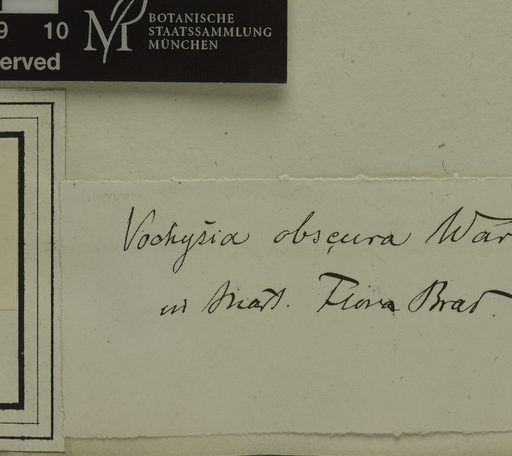 9 10
erved
M
BOTANISCHE
STAATSSAMMLUNG
MÜNCHEN
Vochysia obscura War
in Mart. Flora Bras.